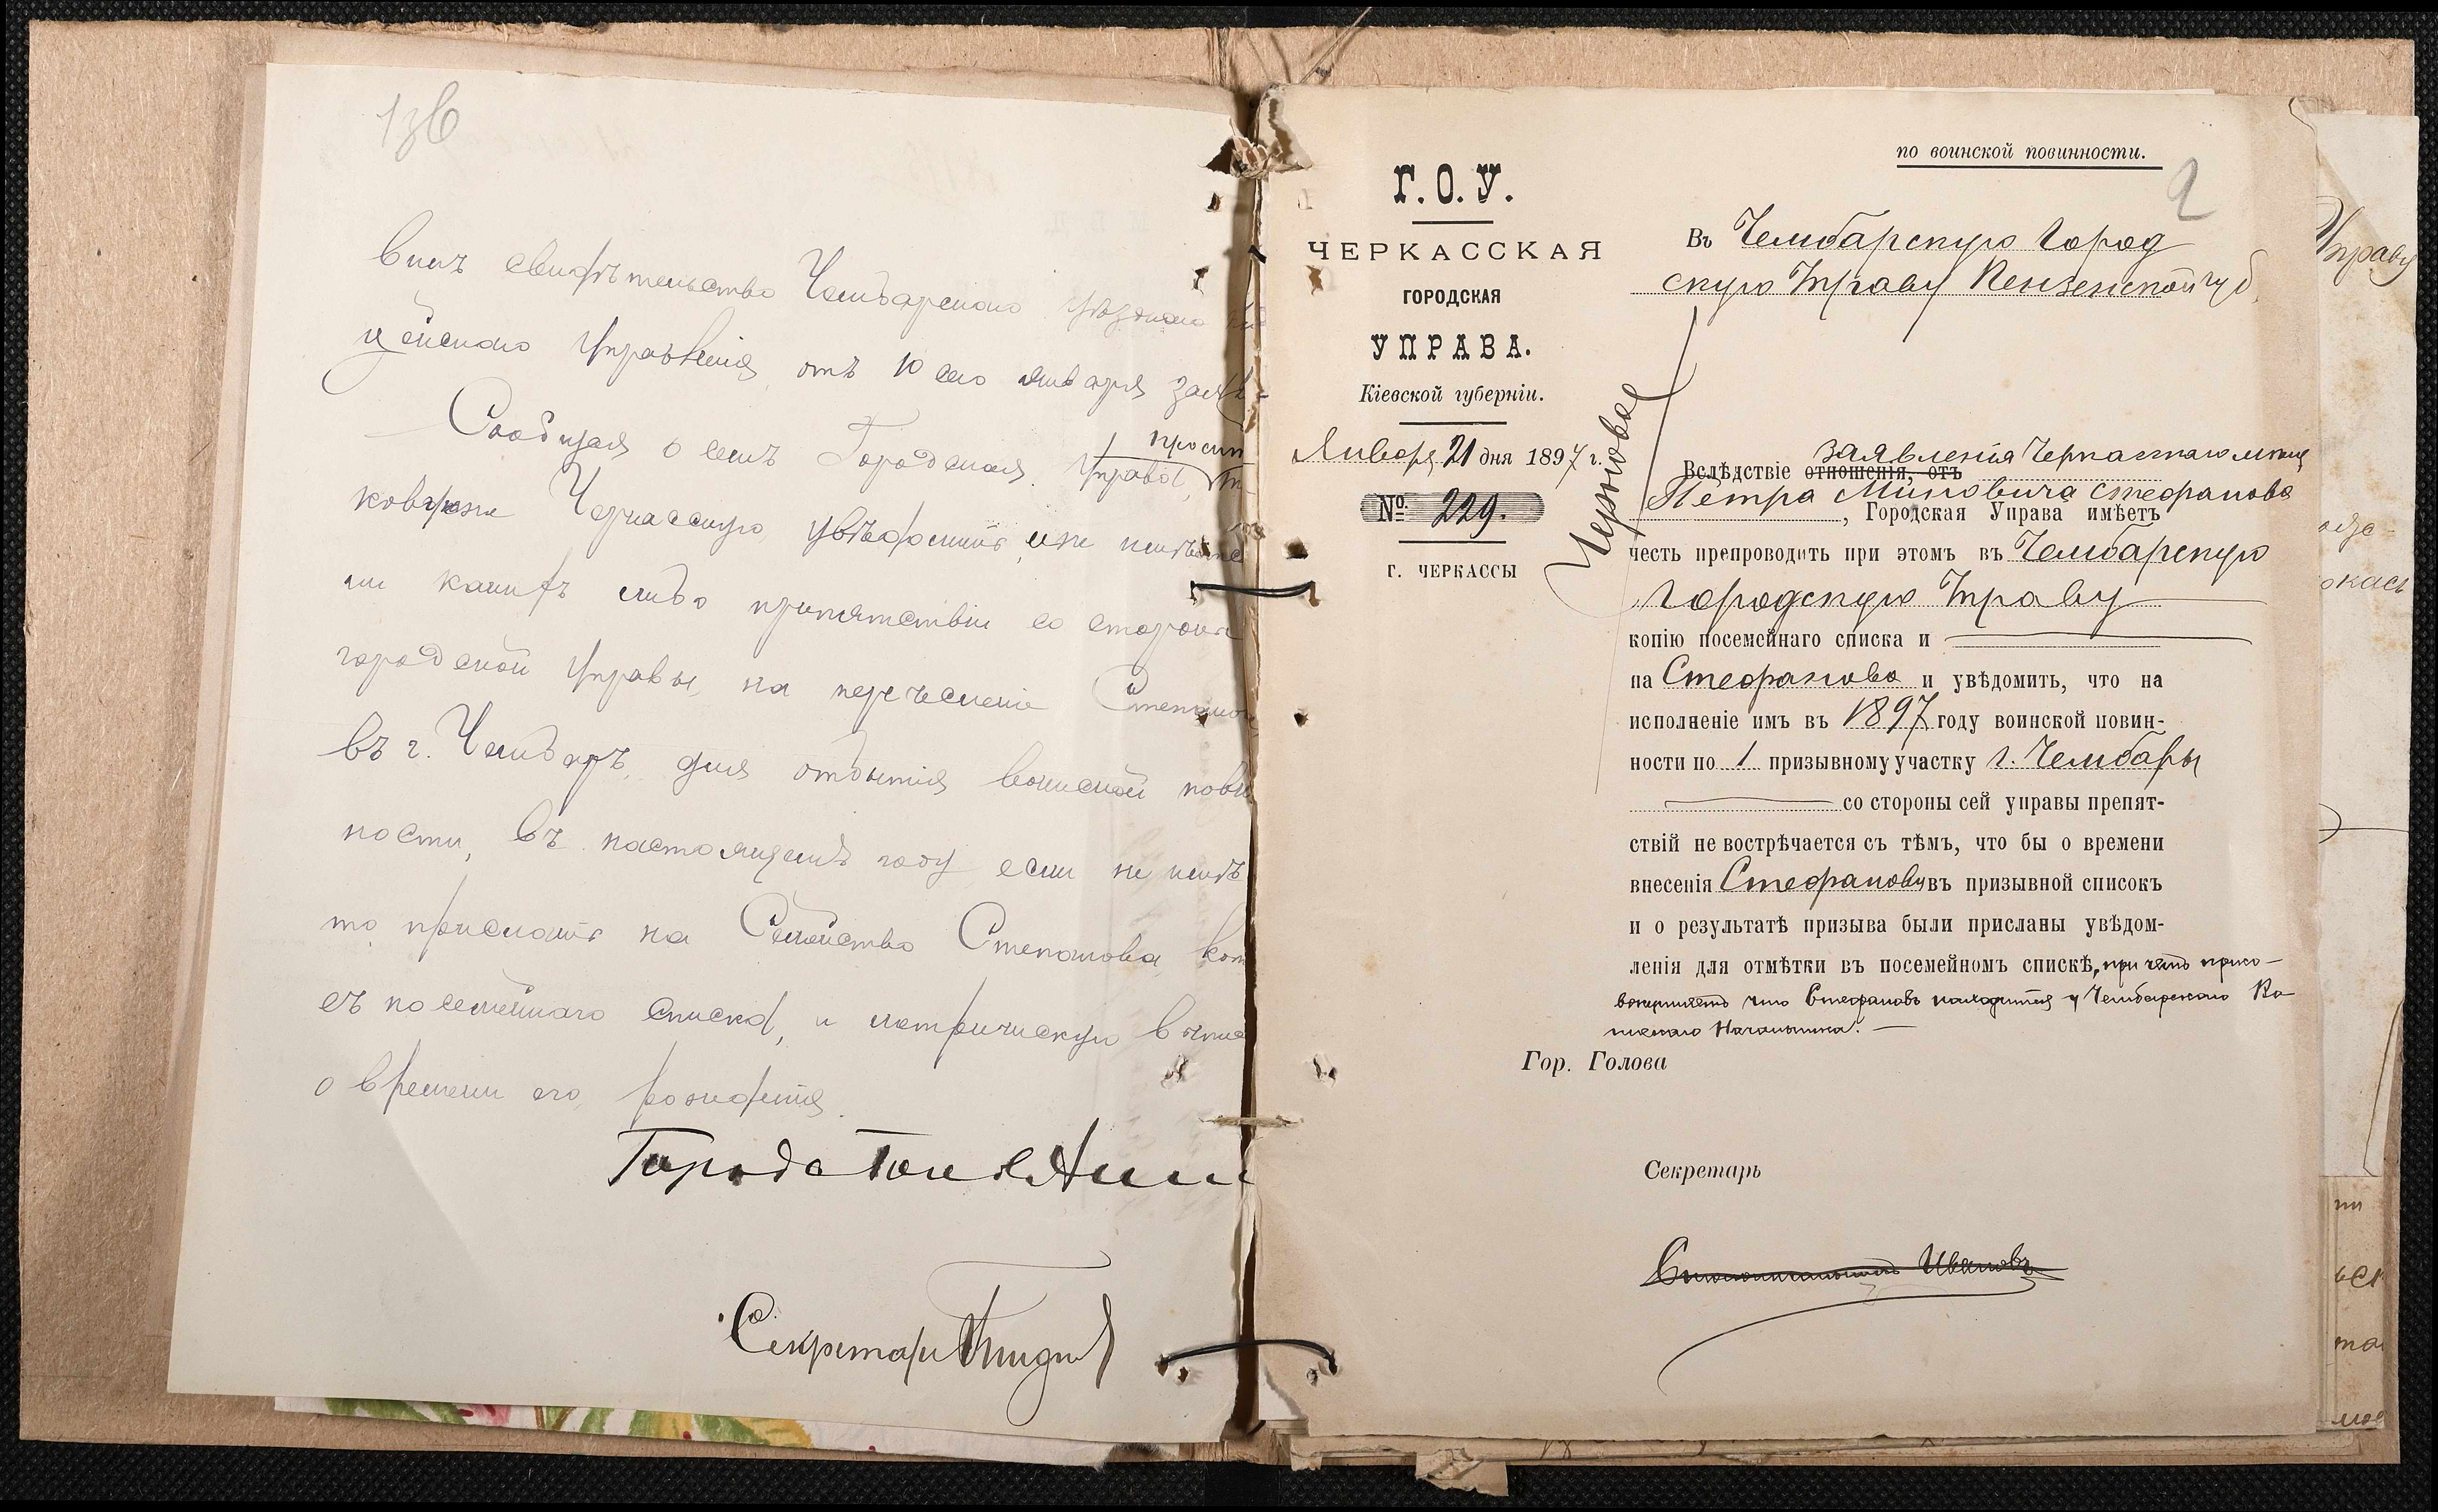 1зв
вилъ свидѣтельство Чембарскаго уѣзднаго
цейскаго Управленія отъ 10 сего января
Сообщая о семъ Городская Управа, просит
Черкасскую, увѣдомить, не
ли какихъ либо препятствій со стороны
городской Управы, на перечисленіе Степанов
въ г. Чембаръ, для отбытія воинской повин
ности, въ настоящемъ году, если не имѣ
то прислать на Семейство Степанова, коп
съ посемейнаго списка, и метрическую выпис
о времени его рожденія.
Секретарь
по воинской повинности.
2
Г. О. У.
ЧЕРКАССКАЯ
ГОРОДСКАЯ
УПРАВА.
Кіевской губерніи.
Января 21 дня 1897 г.
№ 229.
г. ЧЕРКАССЫ
Черновое
Въ Чембарскую Город
скую Управу Пензенской губ.
заявленія Черкасскаго мѣщ
Вслѣдствіе отношенія, отъ
Петра Миновича Стефанова
, Городская Управа имѣетъ
честь препроводить при этомъ въ Чембарскую
Городскую Управу
копію посемейнаго списка и
на Стефанова и увѣдомить, что на
исполненіе имъ въ 1897 году воинской повин-
ности по 1 призывному участку г. Чембары
со стороны сей управы препят-
ствій не встрѣчается съ тѣмъ, что бы о времени
внесенія Стефанова въ призывной списокъ
и о результатѣ призыва были присланы увѣдом-
ленія для отмѣтки въ посемейномъ спискѣ, при чемъ присо-
вокупляетъ что Стефановъ находится у Чембарскаго Во
инскаго Начальника.
Гор. Голова
Секретарь
Ивановъ
Управу